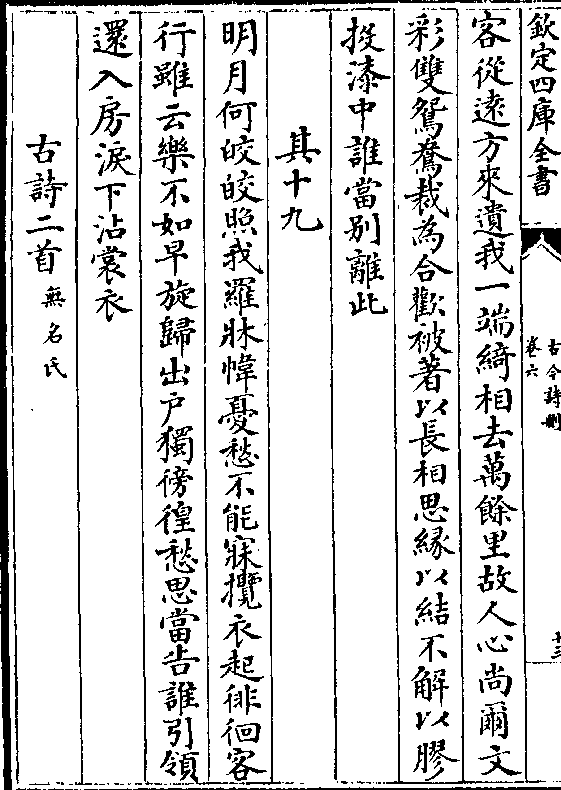 欽定四庫全書
古今詩刪
卷六
十三
客從遠方來遺我一端綺相去萬餘里故人心尚爾文
彩雙鴛鴦裁為合歡被著以長相思縁以結不解以膠
投漆中誰當別離此
其十九
明月何皎皎照我羅牀幃憂愁不能寐攬衣起徘徊客
行雖云樂不如早旋歸出户獨徬徨愁思當告誰引領
還入房淚下沾裳衣
古詩二首 無名氏